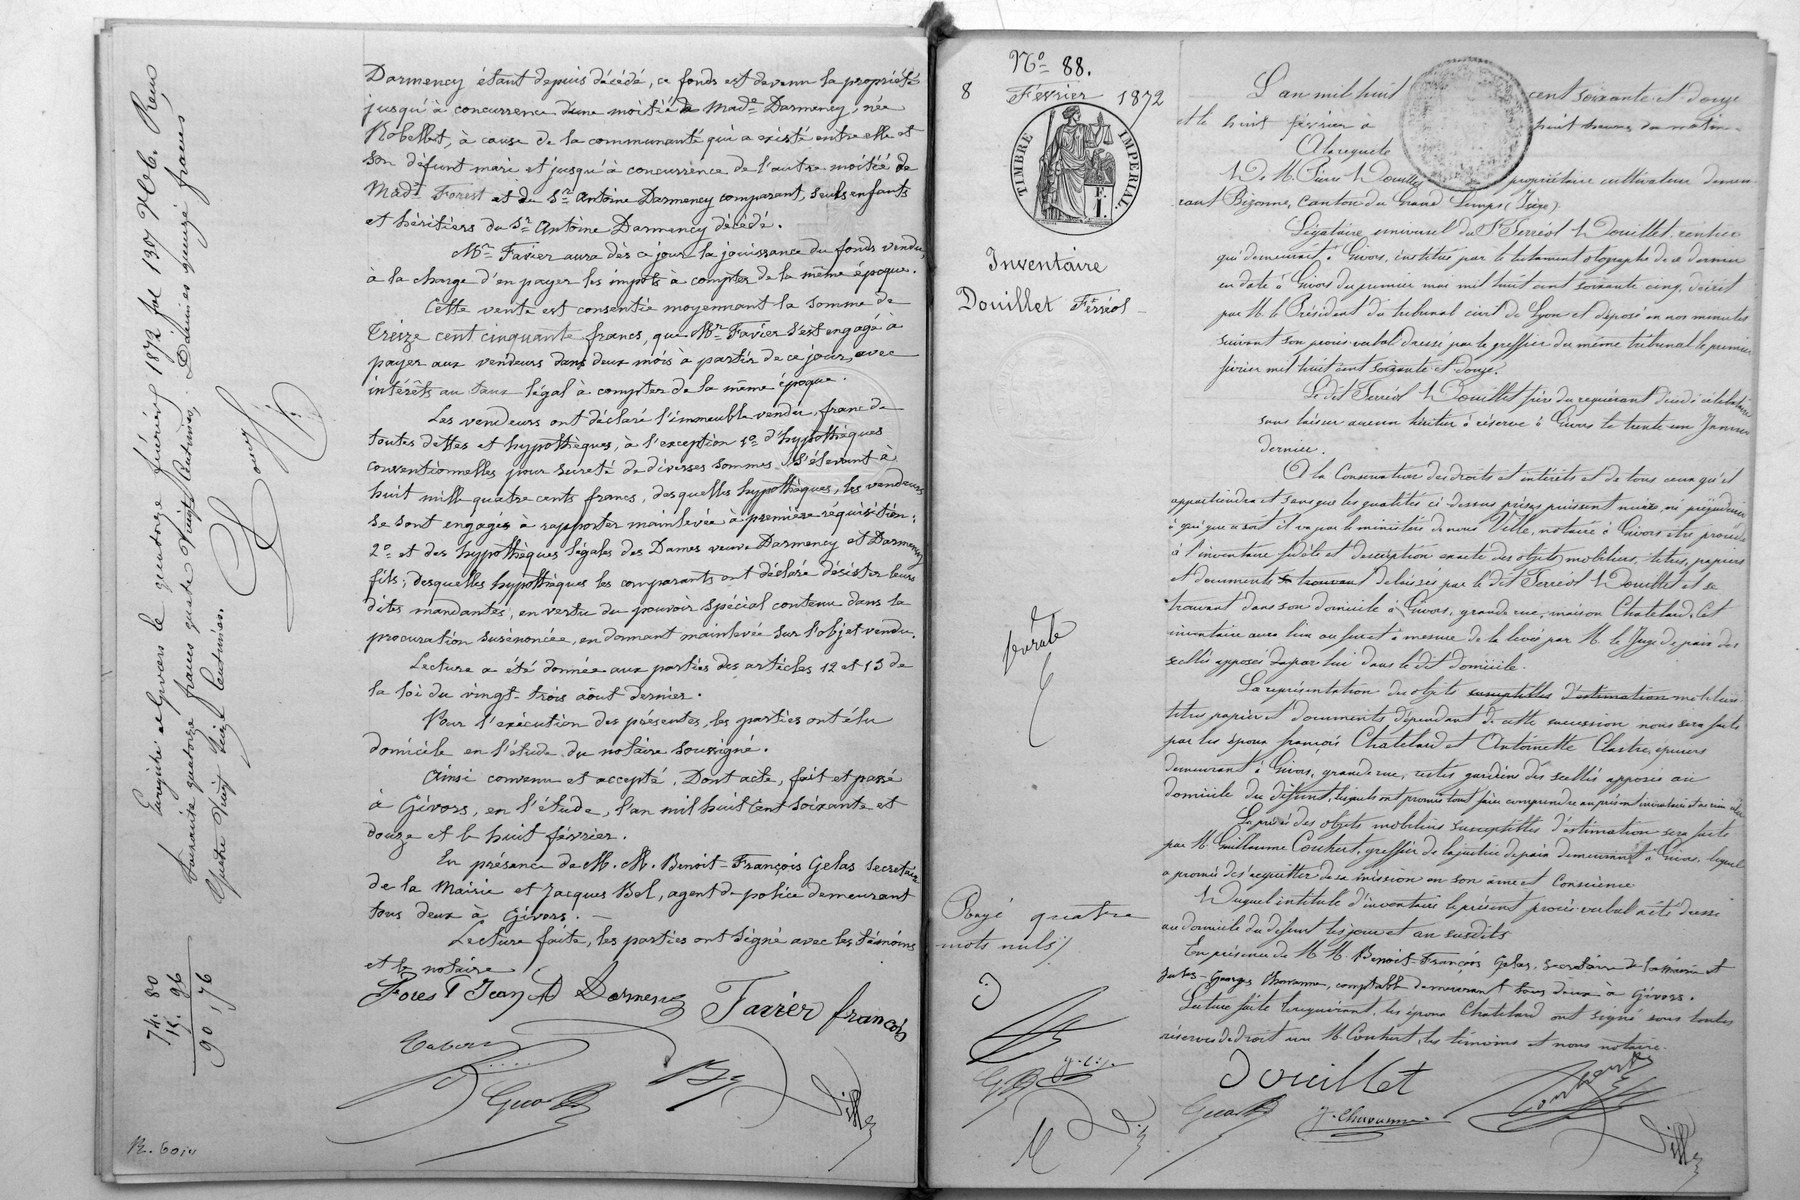 Darmency étant depuis décédé, ce fonds est devenu la propriété
jusqu'à concurrence d'une moitié de Made Darmency, née
Robellet, à cause de la communauté qui a existé entre elle et
son défunt mari et jusqu'à concurrence de l'autre moitié de
Made Forest et du Sr Antoine Darmency comparant, seuls enfants
et héritiers du Sr Antoine Darmency décédé.
Mr Favier aura dès ce jour la jouissance du fonds vendu,
à la charge d'en payer les impôts à compter de la même époque.
Cette vente est consentie moyennant la somme de
Treize cent cinquante francs, que Mr Favier s'est engagé à
payer aux vendeurs dans deux mois à partir de ce jour, avec
intérêts au taux légal à compter de la même époque.
Les vendeurs ont déclaré l'immeuble vendu, franc de
toutes dettes et hypothèques, à l'exception 1o d'hypothèques
conventionnelles pour sureté de diverses sommes s'élevant à
huit mille quatre cents francs, desquelles hypothèques, les vendeurs
se sont engagés à rapporter mainlevée à première réquisition;
2o et des hypothèques légales des Dames veuve Darmency et Darmency
fils; desquelles hypothèques les comparants ont déclaré désister leurs
dites mandantes, en vertu du pouvoir spécial contenu dans la
procuration susénoncée, en donnant mainlevée sur l'objet vendu.
Lecture a été donnée aux parties des articles 12 et 13 de
la loi du vingt-trois août dernier.
Pour l'exécution des présentes, les parties ont élu
domicile en l'étude du notaire soussigné.
Ainsi convenu et accepté. Dont acte, fait et passé
à Givors, en l'étude, l'an mil huit cent soixante et
douze et le huit février.
En présence de M. M. Benoit-François Gelas secrétaire
de la Mairie et Jacques Bel, agent de police demeurant
tous deux à Givors.
Lecture faite, les parties ont signé avec les témoins
et le notaire
Forest Jean A Darmency Favier françois
Ville
Enregistré à Givors le quatorze février 1872 fol 130
soixante quatorze francs quatre vingt centimes
74. 80
15. 96
90, 76
No 88.
8 Février 1872
TIMBRE IMPÉRIAL
F.
1.
Inventaire
Douillet Ferréol
Rayé quatre
mots nuls
L'an mil huit cent soixante et douze
et le huit février à huit heures du matin
A la requête
De M. Pierre Douillet propriétaire cultivateur demeu-
rant Bizonne, canton du Grand Lemps (Isère)
Légataire universel du Sr Ferréol Douillet, rentier
qui demeurait à Givors, institué par le testament olographe de ce dernier
en date à Givors du premier mai mil huit cent soixante cinq, décrit
par M. le Président du tribunal civil de Lyon et déposé en nos minutes
suivant son procès-verbal dressé par le greffier du même tribunal le premier
février mil huit cent soixante et douze.
Le dit Ferréol Douillet frère du requérant décédé célibataire
sans laisser aucun héritier à réserve à Givors le trente un Janvier
dernier.
A la Conservation des droits et intérêts et de tous ceux qu'il
appartiendra et sans que les qualités ci dessus prises puissent nuire, ni préjudicier
à qui que ce soit il va par le ministère de nous Ville, notaire à Givors être procédé
à l'inventaire fidèle et description exacte des objets mobiliers, titres, papiers
et documents se trouvant délaissés par le dit Ferréol Douillet et se
trouvant dans son domicile à Givors, grande rue, maison Chatelard. Cet
inventaire aura lieu au fur et à mesure de la levée par M. le Juge de paix des
scellés apposés par lui dans le dit domicile.
La représentation des objets susceptibles d'estimation mobiliers
titres papiers et documents dépendant de cette succession nous sera faite
par les époux françois Chatelard et Antoinette Clastre, épiciers
demeurant à Givors, grande rue, gardiens des scellés apposés au
domicile du défunt, lesquels ont promis tout faire comprendre au présent inventaire
La prisée des objets mobiliers susceptibles d'estimation sera faite
par M. Guillaume Couhert, greffier de la justice de paix demeurant à Givors, lequel
a promis de s'acquitter de sa mission en son âme et Conscience
Duquel intitulé d'inventaire le présent procès-verbal a été dressé
au domicile du défunt les jour et an susdits
En présence de M M. Benoit-François Gelas, secrétaire de la Mairie et
Jules-Georges Charvanne, comptable demeurant tous deux à Givors.
Lecture faite le requérant, les époux Chatelard ont signé sous toutes
réserves de droit avec M. Couhert, les témoins et nous notaire.
Douillet
Ville